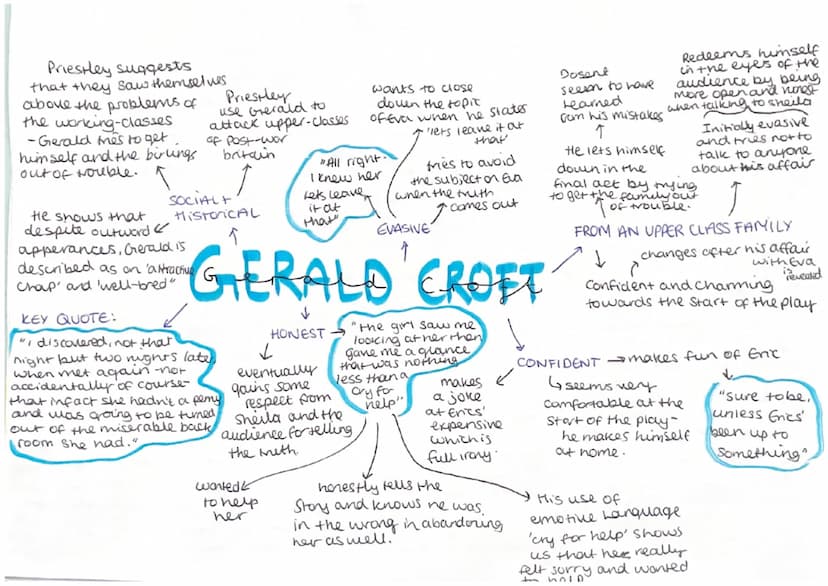 Priestley suggests
that they saw themselves
above the problems of
the working-classes
- Gerald tries to get
himself and the birlings
out of trouble.
Priestley
use Gerald to
attack upper-classes
of post-war
britain
SOCIAL +
HISTORICAL
He shows that
despite outward
apperances, Gerald is
described as an 'attractive
chap' and 'well-bred"
"All right.
I knew her
lets leave
it at
that"
wants to close
down the topic
of Eva when he states
'lets leave it at
that'
tries to avoid
the subject on Eva
when the truth
comes out
EVASIVE
Dosent
seem to have
learned
from his mistakes
He lets himself
down in the
final act by trying
to get the family out
of trouble.
Redeems himself
in the eyes of the
audience by being
more open and honest
when talking to sheila
Initially evasive
and tries not to
talk to anyone
about his affair
FROM AN UPPER CLASS FAMILY
changes after his affair
with Eva
is revealed
Confident and charming
towards the start of the play
GERALD CROFT
Gerald Croft
KEY QUOTE:
"I discovered, not that
night but two nights later
when met again - not
accidentally of course -
that infact she hadn't a penny
and was going to be turned
out of the miserable back
room she had."
HONEST
eventually
gains some
respect from
Sheila and the
audience for telling
the truth
"the girl saw me
looking at her then
gave me a glance
that was nothing
less than a
cry for
help"
wanted
to help
her
honestly tells the
story and knows he was
in the wrong in abandoning
her as well.
His use of
emotive language
'cry for help' shows
us that he really
felt sorry and wanted
to help
CONFIDENT
makes fun of Eric
makes
a joke
at Erics'
expensive
which is
full irony.
seems very
comfortable at the
start of the play -
he makes himself
at home.
"sure to be,
unless Erics'
been up to
something"